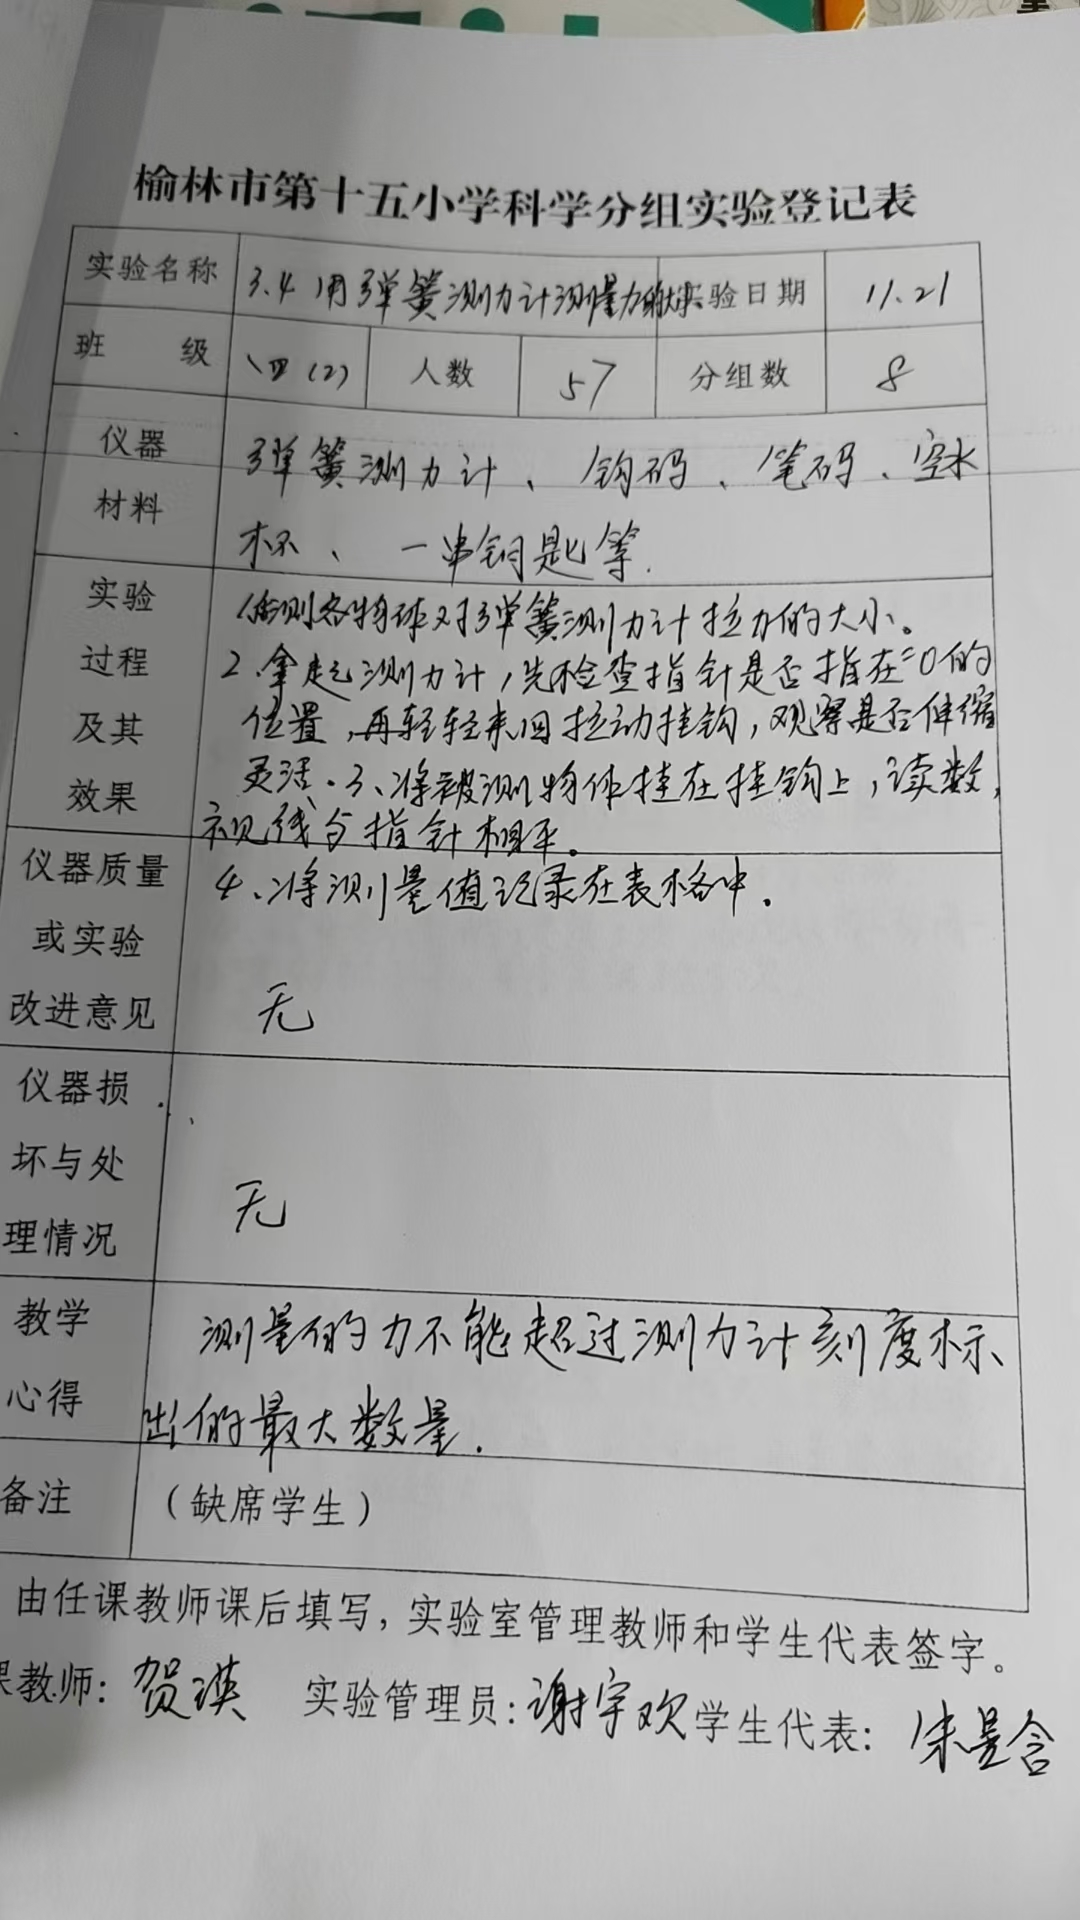 榆林市第十五小学科学分组实验登记表
实验名称 3.4用弹簧测力计测量力的大小 实验日期 11.21
班 级 四(2) 人数 57 分组数 8
仪器 弹簧测力计、钩码、笔码、空水
材料 杯、一串钥匙等.
实验 1估测各物体对弹簧测力计拉力的大小。
过程 2.拿起测力计,先检查指针是否指在"0的
及其 位置,再轻轻来回拉动挂钩,观察是否伸缩
效果 灵活.3、将被测物体挂在挂钩上,读数,
视线与指针相平。
仪器质量 4、将测量值记录在表格中.
或实验
改进意见 无
仪器损
坏与处
理情况 无
教学 测量的力不能超过测力计刻度标
心得 出的最大数量.
备注 (缺席学生)
由任课教师课后填写,实验室管理教师和学生代表签字。
课教师: 贺瑛 实验管理员:谢宇欢 学生代表: